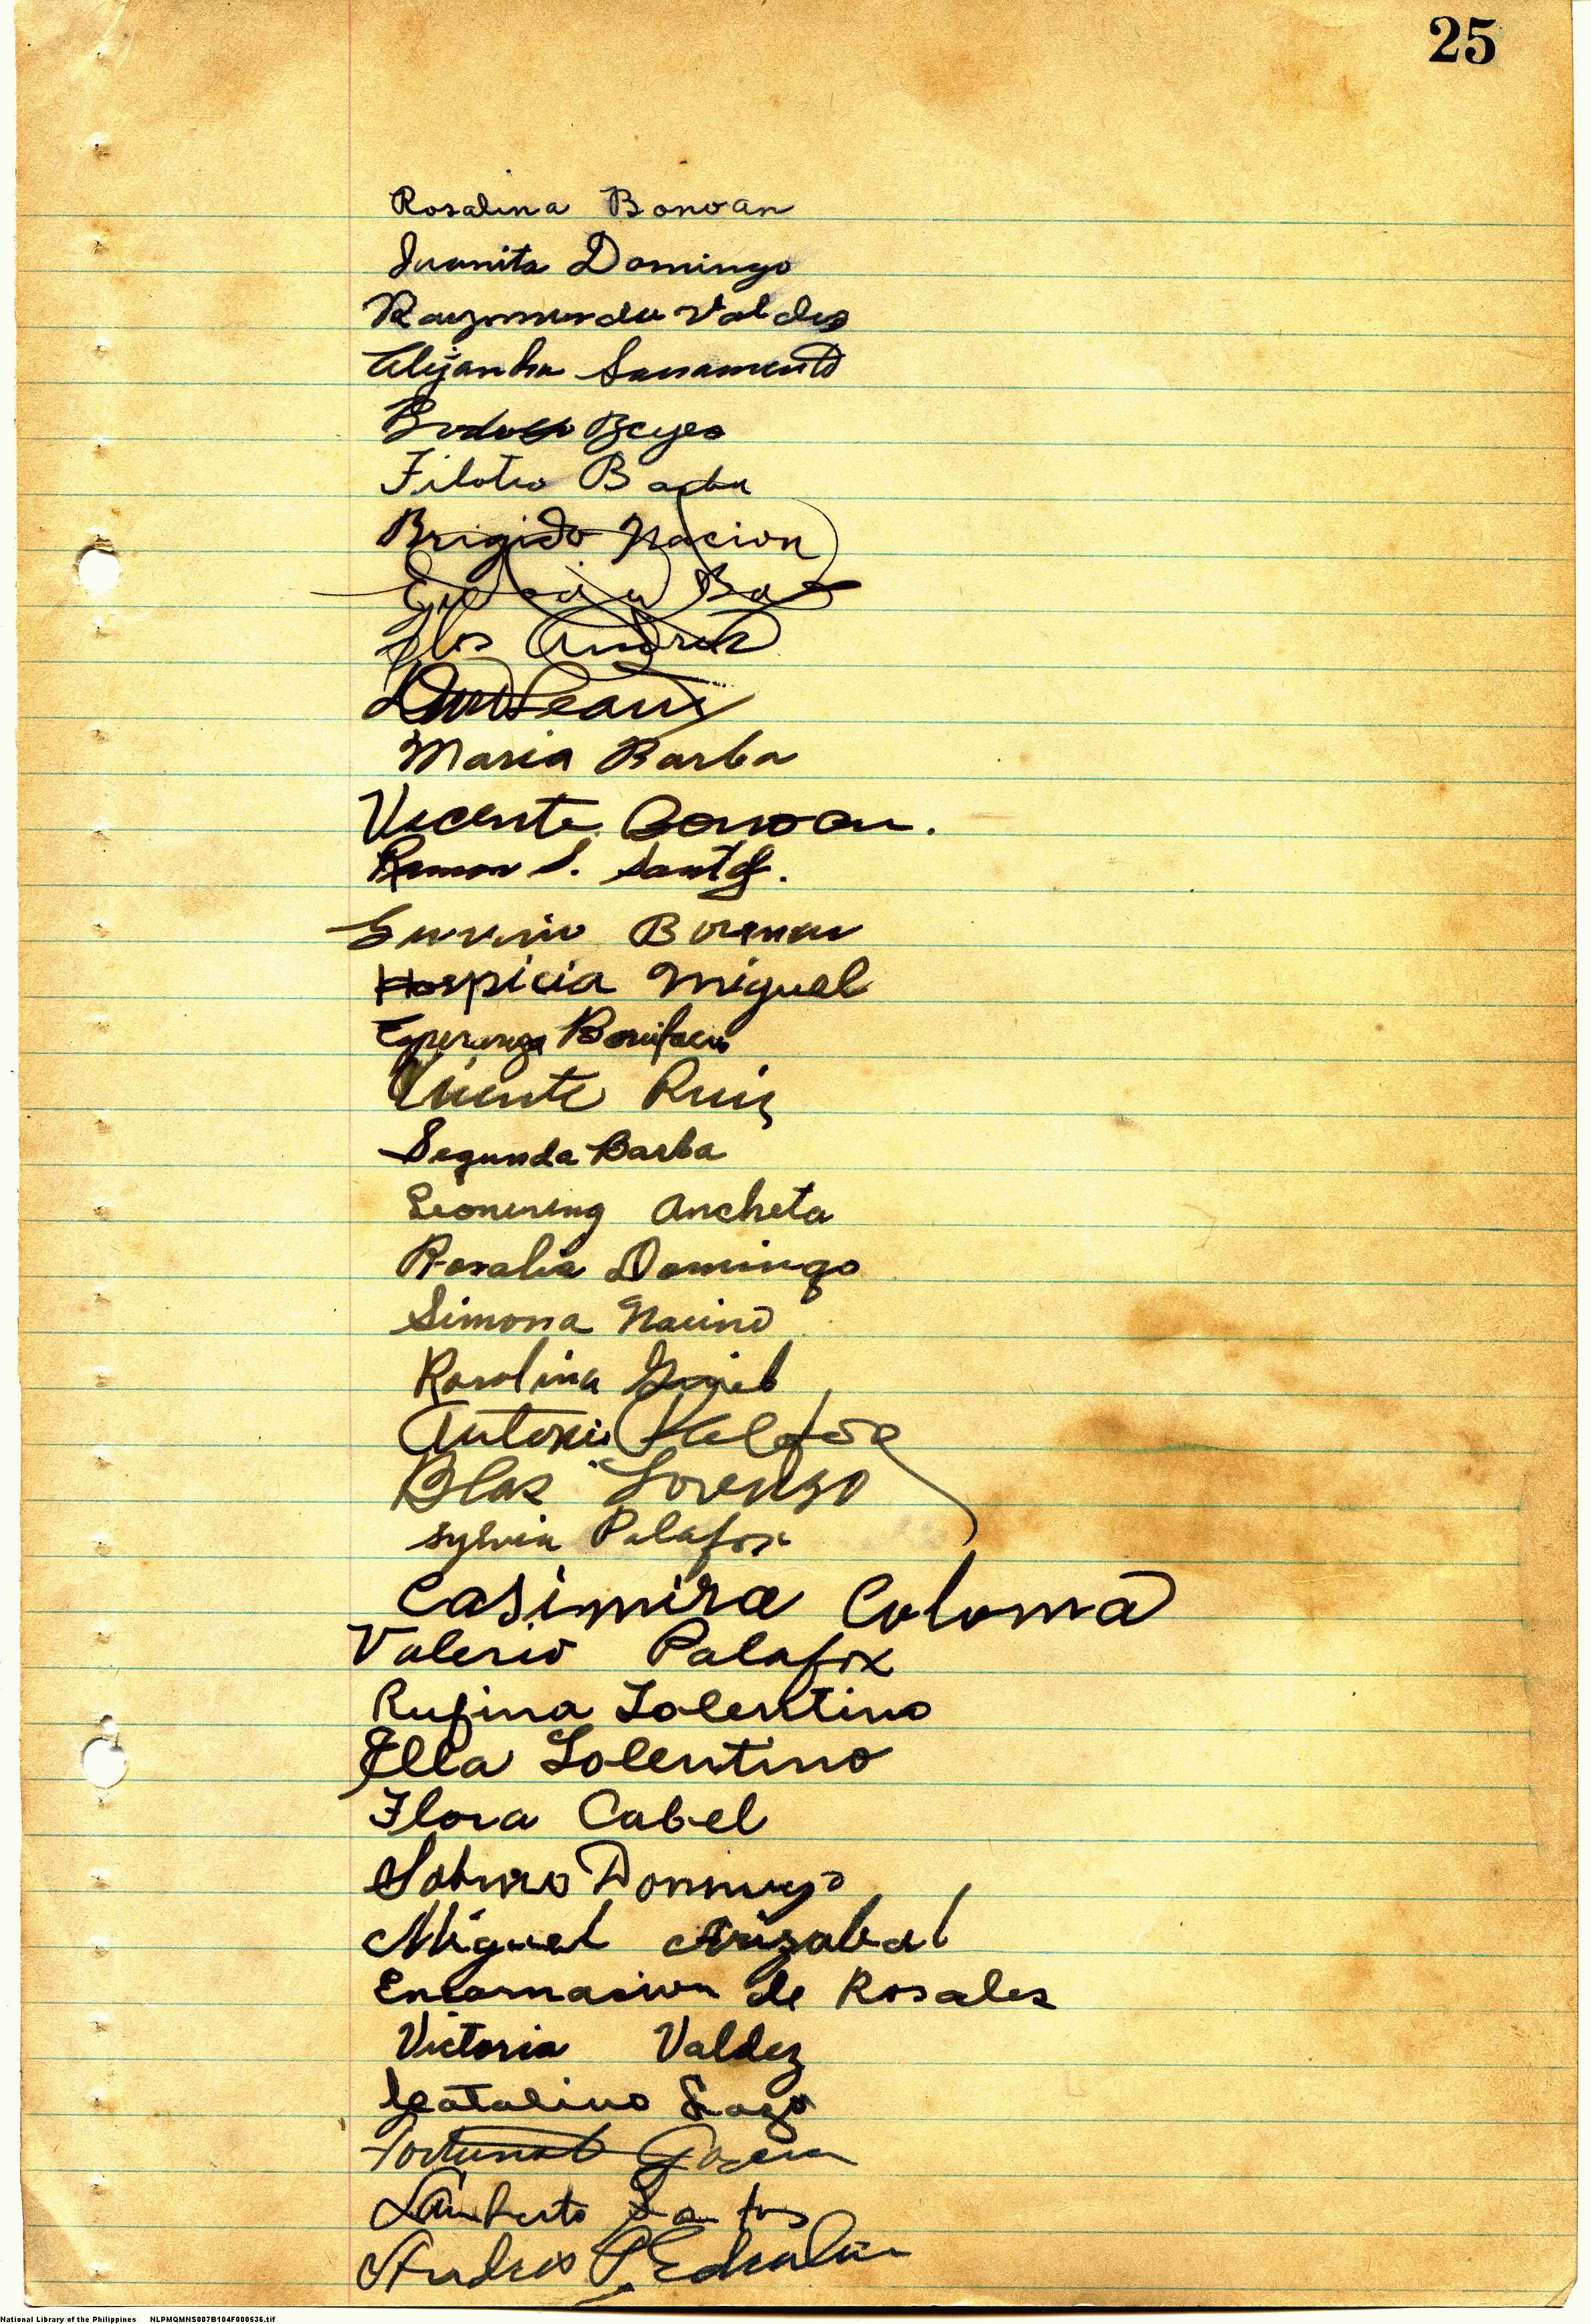 25
Rosalina Bonoan
Juanita Domingo
Raymundo Valdez
Alejandra Sacramento
Reyes
Filoteo Barba
Brigido Nacion
Andres
Maria Barba
Vicente Bonoan.
Ramon S. Santos.
Hospicia Miguel
Esperanza Bonifacio
Vicente Ruiz
Segunda Barba
Ancheta
Rosalia Domingo
Simona Nacino
Rosalina
Antonio Palafox
Blas Lorenzo
Sylvia Palafox
Casimira Coloma
Valerio Palafox
Rufina Tolentino
Ella Tolentino
Flora Cabel
Sabino Domingo
Miguel Arizabal
Encarnacion de Rosales
Victoria Valdez
Catalino Lago
Fortunato
Lamberto Santos
Andres P. Edralin
National Library of the Philippines NLPMQMNS007B104F000536.tif